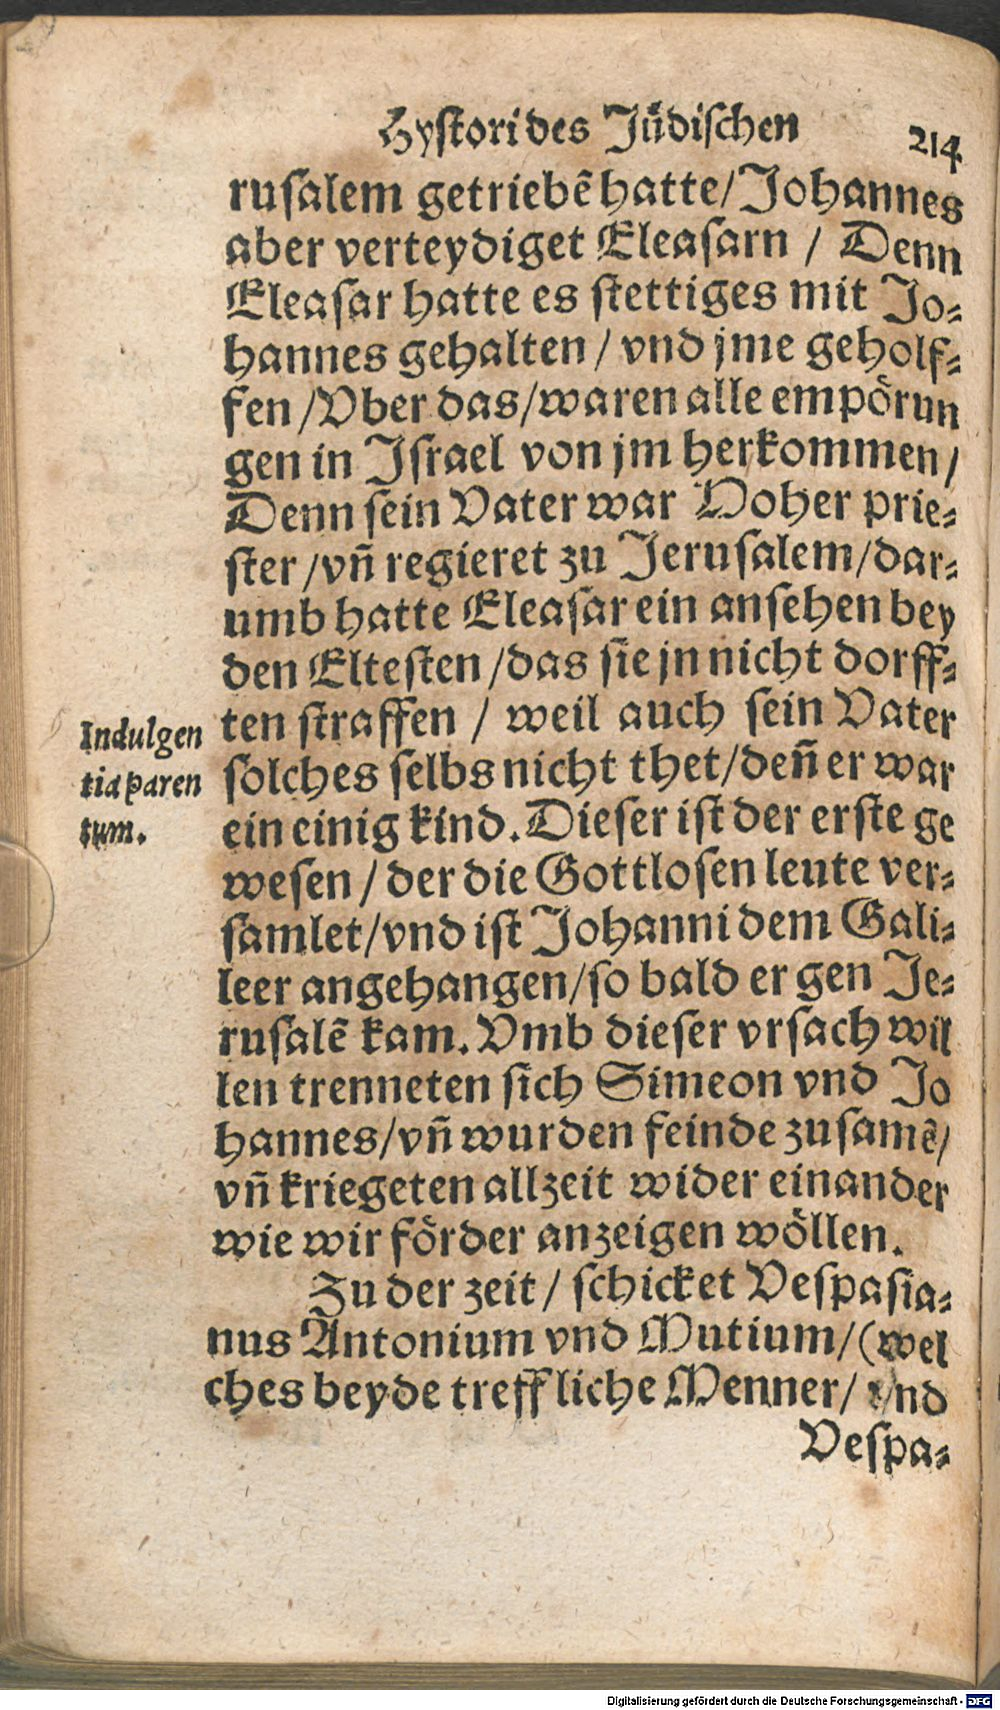 Hystori des Jüdischen 214.
rusalem getriebē hatte/Johannes
aber verteydiget Eleasarn / Denn
Eleasar hatte es stettiges mit Jo-
hannes gehalten / vnd jme geholf-
fen /Vber das/waren alle empörun
gen in Israel von jm herkommen/
Denn sein Vater war Hoher prie-
ster /vñ regieret zu Jerusalem/dar-
umb hatte Eleasar ein ansehen bey
den Eltesten /das sie jn nicht dorff-
ten straffen / weil auch sein Vater
solches selbs nicht thet/deñ er war
ein einig kind. Dieser ist der erste ge
wesen / der die Gottlosen leute ver-
samlet/vnd ist Johanni dem Gali-
leer angehangen/so bald er gen Je-
rusalē kam. Vmb dieser vrsach wil
len trenneten sich Simeon vnd Jo
hannes/vñ wurden feinde zusamē/
vñ kriegeten allzeit wider einander
wie wir förder anzeigen wöllen.
Zu der zeit / schicket Vespasia-
nus Antonium vnd Mutium/(wel
ches beyde treffliche Menner/ vnd
Vespa-
Indulgen
tia paren
tum.
Digitalisierung gefördert durch die Deutsche Forschungsgemeinschaft - DFG